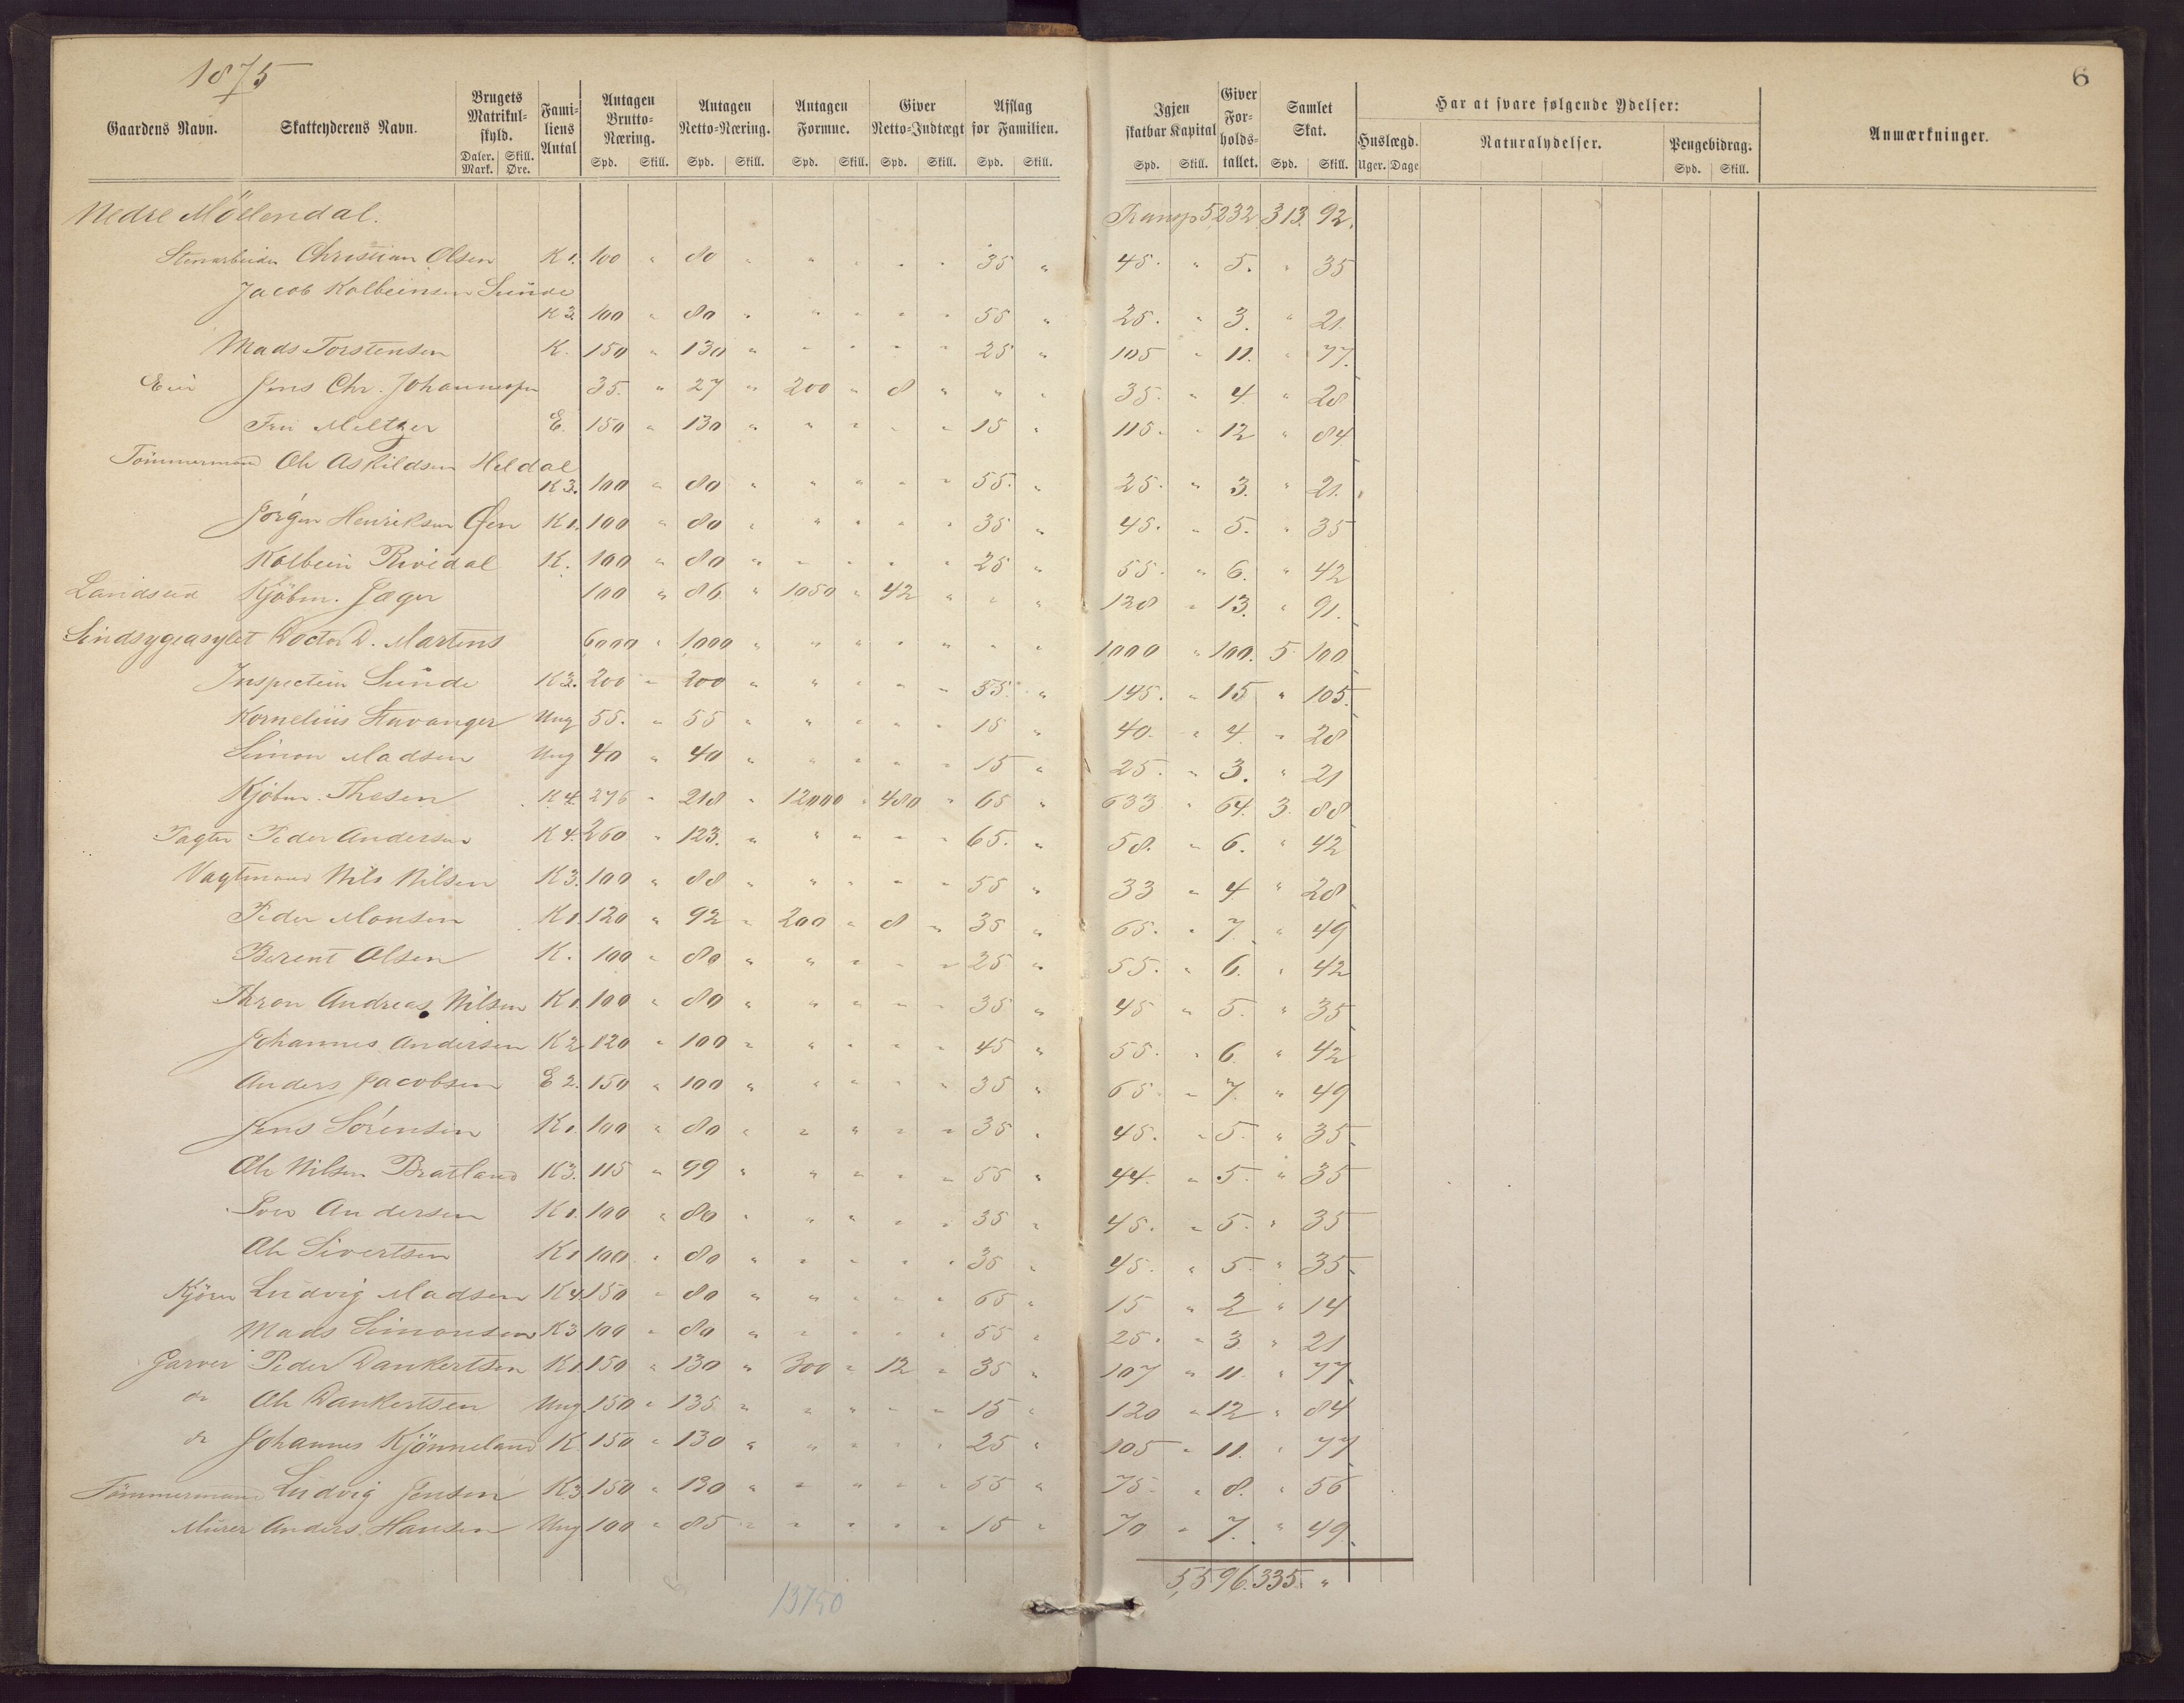 1875
6
Gaardens Navn. Skatteyderens Navn. Brugets Matrikul-skyld. Daler. Mark. Skill. Øre. Familiens Antal Antagen Brutto-Næring. Spd. Skill. Antagen Netto-Næring. Spd. Skill. Antagen Formue. Spd. Skill. Giver Netto-Indtægt Spd. Skill. Afslag for Familien. Spd. Skill. Igjen skatbar Kapital Spd. Skill. Giver Forholds-tallet. Samlet Skat. Spd. Skill. Har at svare følgende Ydelser: Huslægd. Uger. Dage Naturalydelser. Pengebidrag. Spd. Skill. Anmærkninger.
Nedre Möllendal. Transp 5232 313. 92.
Stenarbeider Christian Olsen K 1. 100 " 80 " " " " " 35 " 45. " 5. " 35
Jacob Kolbeinsen Sunde
K 3 100 " 80 " " " " " 55 " 25. " 3. " 21.
Mads Torstensen K. 150 " 130 " " " " " 25 " 105 " 11. " 77.
Eier Jens Chr. Johannessen 35. " 27 " 200 " 8 " " " 35. " 4. " 28
Fru Meltzer E. 150 " 130 " " " " " 15 " 115. " 12 " 84.
Tömmermand Ole Askildsen Heldal
K 3. 100 " 80 " " " " " 55. " 25. " 3. " 21.
Jørgen Henriksen Øen K 1. 100 " 80 " " " " " 35 " 45. " 5. " 35
Kolbein Rivedal K. 100 " 80 " " " " " 25 " 55. " 6. " 42
Landsted Kjöbm. Jæger 100 " 86 " 1050 " 42 " " " 128 " 13. " 91.
Sindsygeasylet Doctor D. Martens 6000 " 1000 " " " " " " " 1000 " 100. 5. 100.
Inspecteur Sunde K 3. 200 " 200 " " " " " 55. " 145. " 15 " 105.
Kornelius Stavanger Ung 55. " 55 " " " " " 15 " 40. " 4. " 28
Simon Madsen Ung 40 " 40 " " " " " 15 " 25. " 3. " 21
Kjöbm. Thesen K 4. 276 " 218 " 12000 " 480 " 65 " 633 " 64. 3. 88
Peder Andersen K 4. 260 " 123. " " " " " 65. " 58. " 6. " 42
Vagtmand Nils Nilsen K 3. 100 " 88 " " " " " 55 " 33 " 4 " 28
Peder Monsen K 1. 120 " 92 " 200 " 8 " 35 " 65. " 7. " 49
Berent Olsen K. 100 " 80 " " " " " 25 " 55. " 6. " 42
Thron Andreas Nilsen K 1. 100 " 80 " " " " " 35 " 45 " 5. " 35
Johannes Andersen K 2 120 " 100 " " " " " 45 " 55. " 6. " 42
Anders Jacobsen E 2. 150 " 100 " " " " " 35 " 65 " 7. " 49
Jens Sörensen K 1. 100 " 80 " " " " " 35 " 45. " 5. " 35
Ole Nilsen Bratland K 3. 115 " 99 " " " " " 55 " 44. " 5. " 35
Andersen K 1. 100 " 80 " " " " " 35 " 45. " 5. " 35
Ole Sivertsen K 1 100 " 80 " " " " " 35 " 45. " 5. " 35
Ludvig Madsen K 4 150 " 80 " " " " " 65 " 15 " 2 " 14
Mads Simonsen K 3 100 " 80 " " " " " 55 " 25. " 3. " 21
Garver Peder Dankertsen K 1. 150 " 130 " 300 " 12 " 35 " 107 " 11. " 77.
do Ole Dankertsen Ung. 150 " 135 " " " " " 15 " 120 " 12 " 84
do Johannes Kjönneland K 150 " 130 " " " " " 25 " 105 " 11. " 77
Tömmermand Ludvig Jensen K. 3 150 " 130 " " " " " 55 " 75. " 8. " 56
Murer Anders Hansen Ung 100 " 85 " " " " " 15 " 70 " 7. " 49.
5,596. 335. "
13750